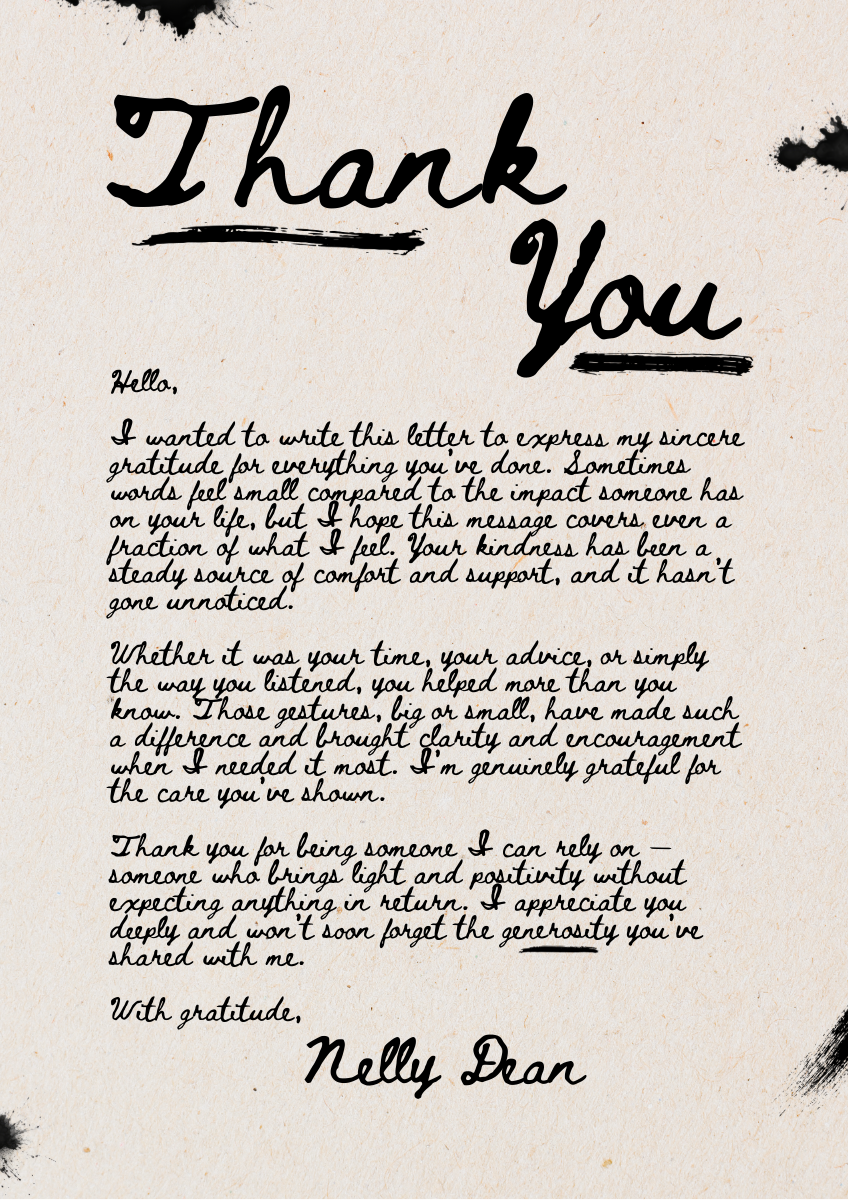 Thank
You
Hello,
I wanted to write this letter to express my sincere
gratitude for everything you've done. Sometimes
words feel small compared to the impact someone has
on your life, but I hope this message covers even a
fraction of what I feel. Your kindness has been a
steady source of comfort and support, and it hasn't
gone unnoticed.
Whether it was your time, your advice, or simply
the way you listened, you helped more than you
know. Those gestures, big or small, have made such
a difference and brought clarity and encouragement
when I needed it most. I'm genuinely grateful for
the care you've shown.
Thank you for being someone I can rely on —
someone who brings light and positivity without
expecting anything in return. I appreciate you
deeply and won't soon forget the generosity you've
shared with me.
With gratitude,
Nelly Dean